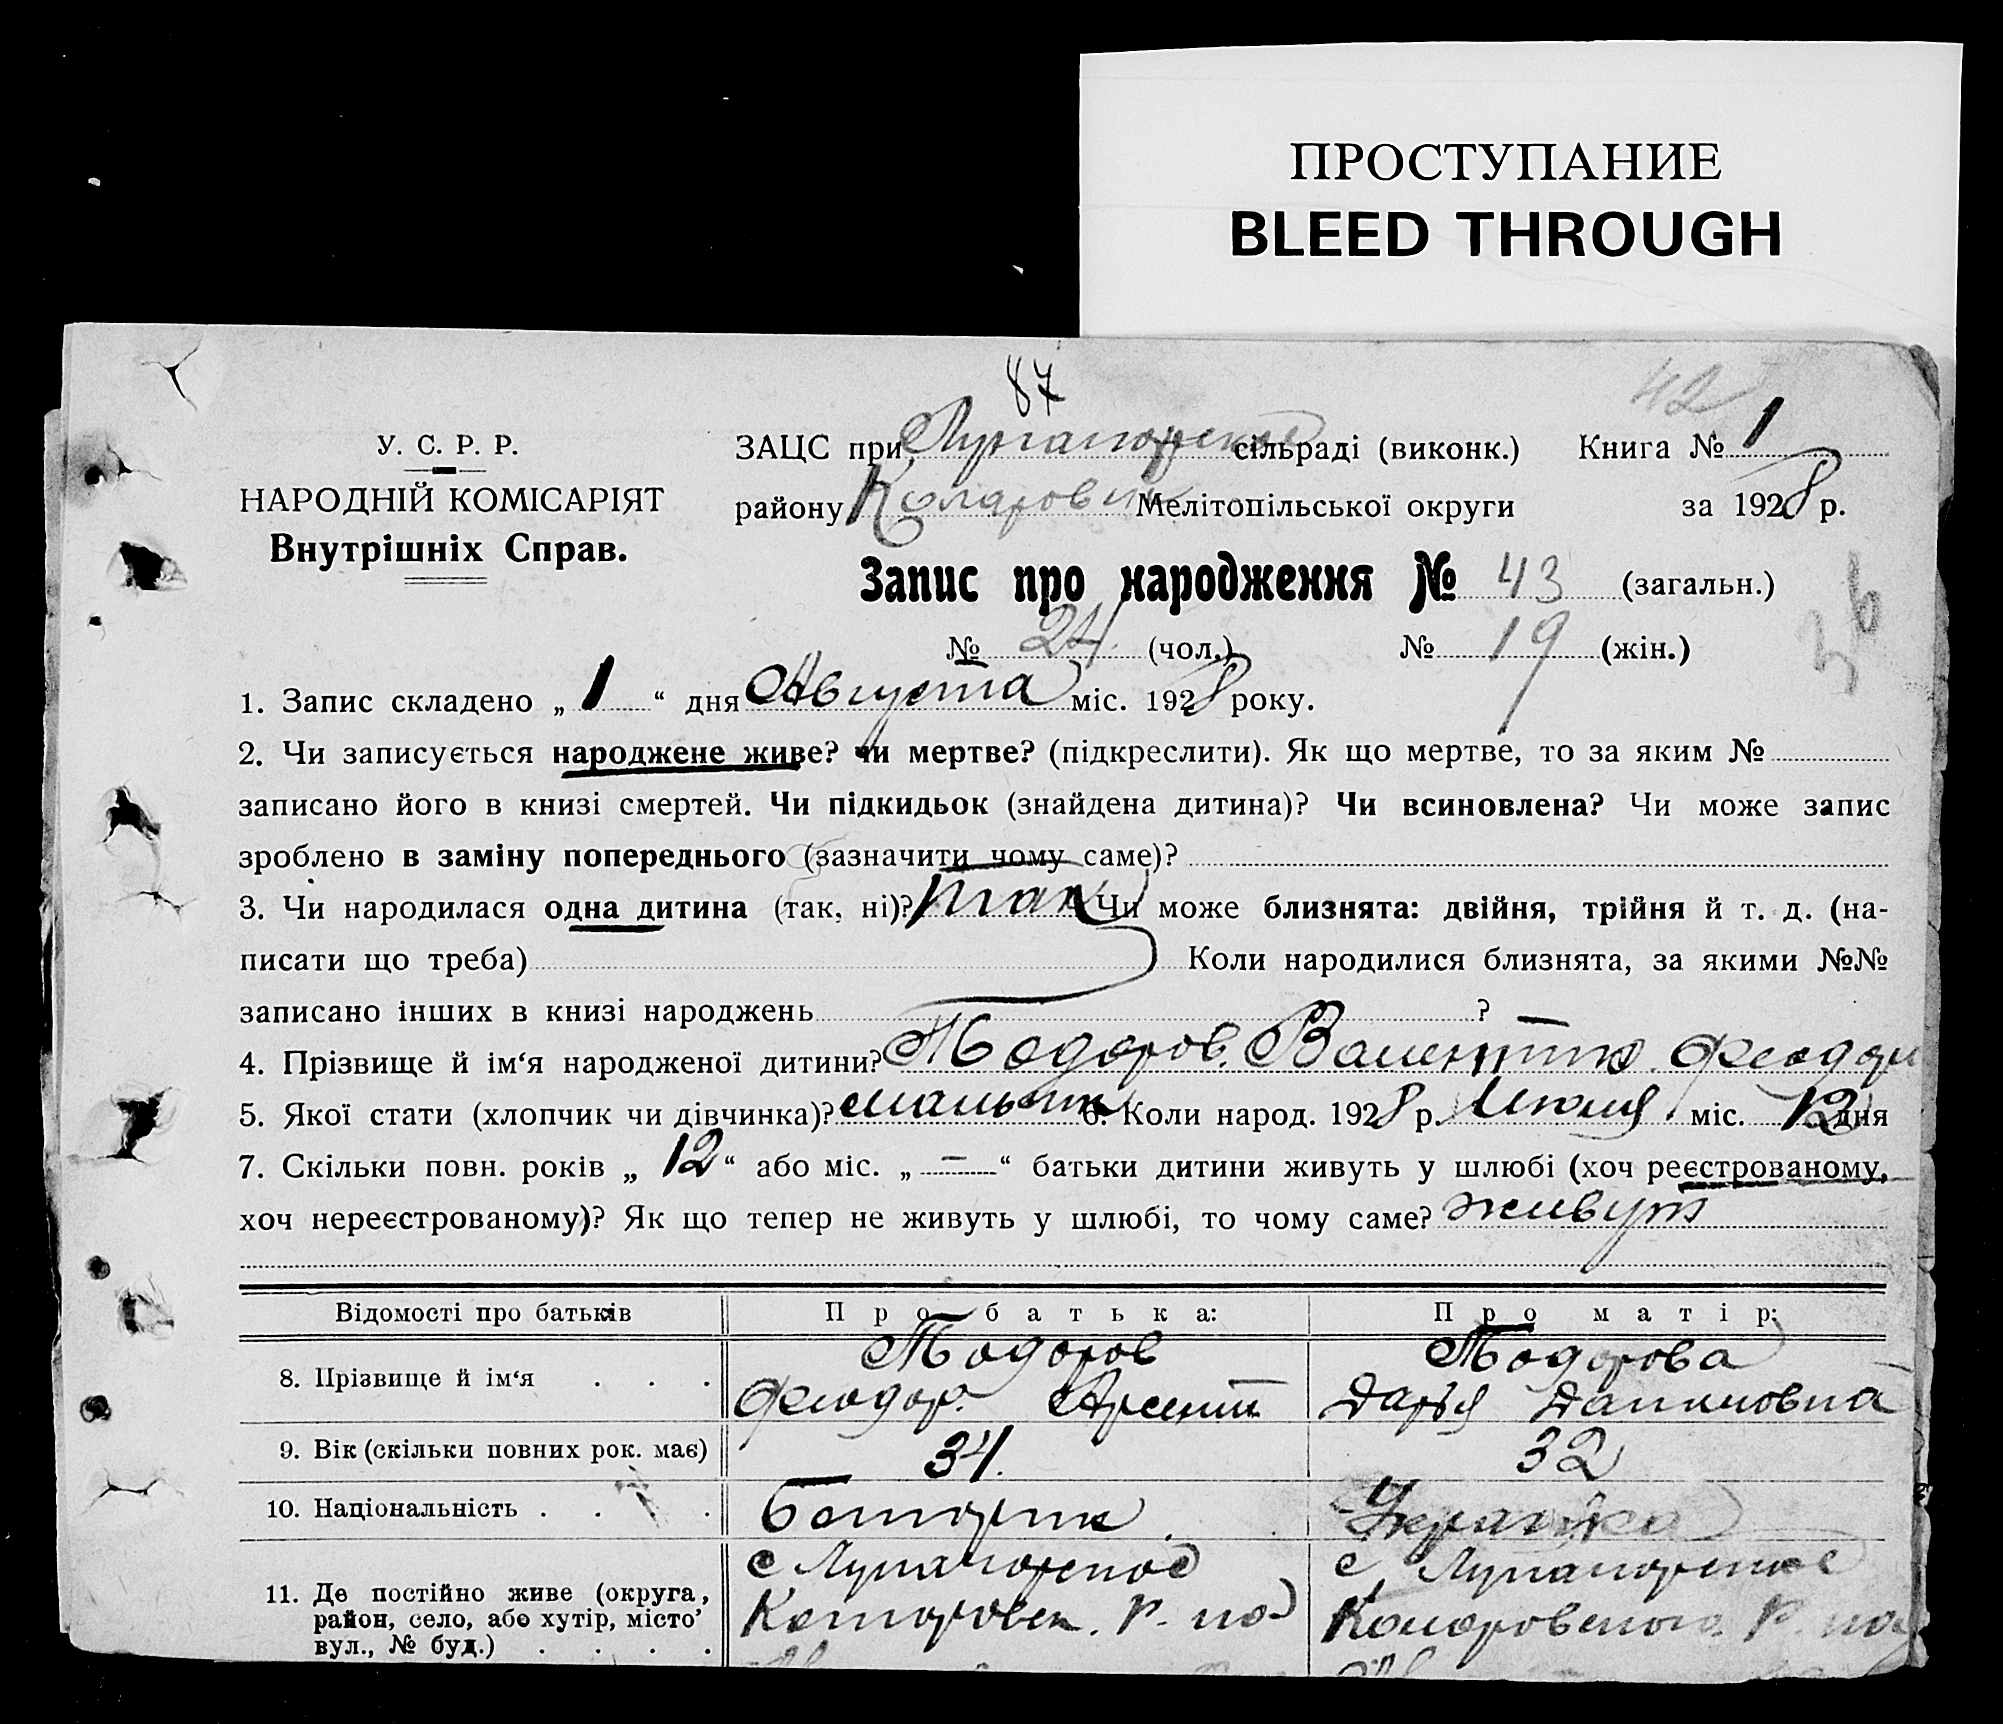 ПРОСТУПАНИЕ
BLEED THROUGH
87
42
У. С. Р. Р.
НАРОДНІЙ КОМІСАРІЯТ
Внутрішніх Справ.
ЗАЦС при сільраді (виконк.) Книга № 1
району Коларовск Мелітопільської округи за 1928 р.
Запис про народження № 43 (загальн.)
36
№ 24 (чол.) № 19 (жін.)
1. Запис складено „ 1 “ дня Августа міс. 1928 року.
2. Чи записується народжене живе? чи мертве? (підкреслити). Як що мертве, то за яким №
записано його в книзі смертей. Чи підкидьок (знайдена дитина)? Чи всиновлена? Чи може запис
зроблено в заміну попереднього (зазначити чому саме)?
3. Чи народилася одна дитина (так, ні)? так Чи може близнята: двійня, трійня й т. д. (на-
писати що треба) Коли народилися близнята, за якими №№
записано інших в книзі народжень ?
4. Прізвище й ім‘я народженої дитини? Тодоров Валентин Феодор
5. Якої стати (хлопчик чи дівчинка)? мальчик 6. Коли народ. 1928 р. Июля міс. 12 дня
7. Скільки повн. років „ 12 “ або міс. „ — “ батьки дитини живуть у шлюбі (хоч реєстрованому,
хоч нереєстрованому)? Як що тепер не живуть у шлюбі, то чому саме? живут
Відомості про батьків Про батька: Про матір:
8. Прізвище й ім‘я . . . Тодоров Тодорова
Феодор Арсент Дарья Даниловна
9. Вік (скільки повних рок. має) 34. 32
10. Національність . . . Болгарин Украинка
11. Де постійно живе (округа,
район, село, або хутір, місто’
вул., № буд.) . . . .
с с
Коларовск. р. Коларовского р.